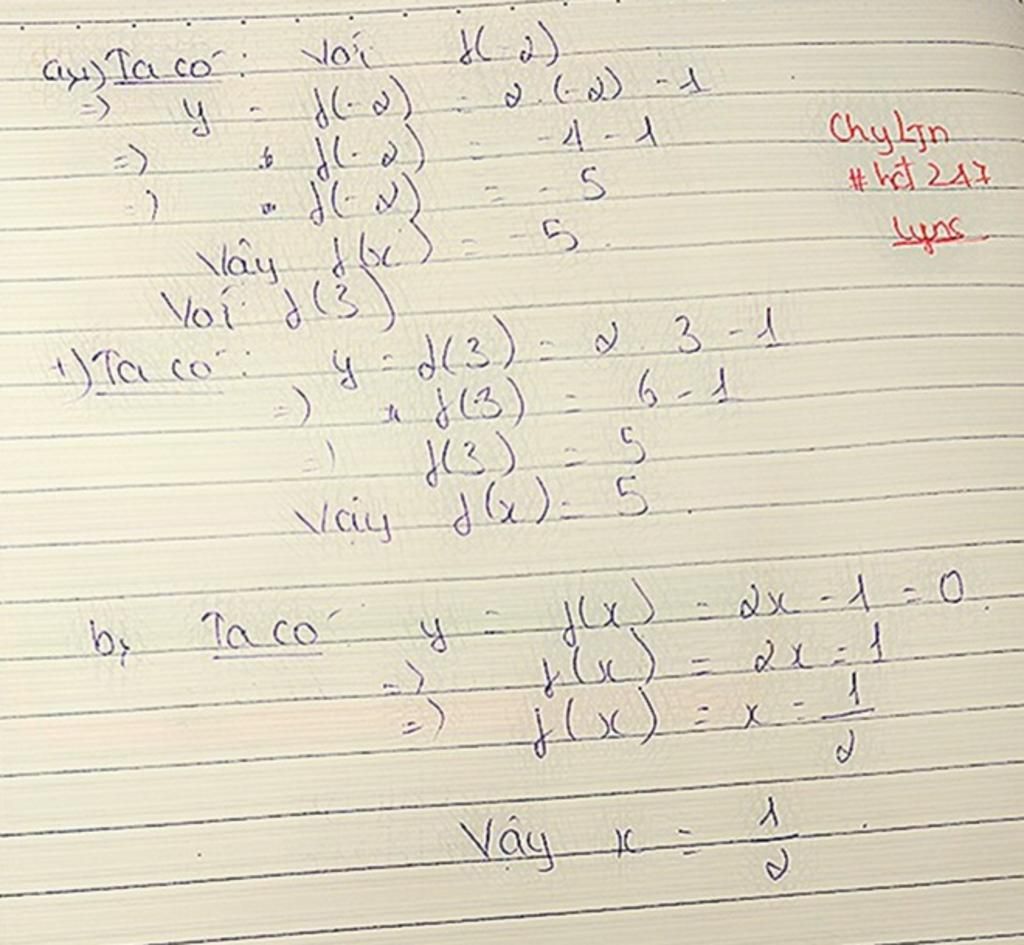 a, +) Ta có: Với f(-2)
=> y = f(-2) = 2.(-2) - 1
=> f(-2) = -4 - 1
=> f(-2) = -5
Vậy f(x) = -5.
Với f(3)
+) Ta có: y = f(3) = 2.3 - 1
=> f(3) = 6 - 1
=> f(3) = 5
Vậy f(x) = 5.
b, Ta có y = f(x) = 2x - 1 = 0.
=> f(x) = 2x = 1
=> f(x) = x = 1/2
Vậy x = 1/2.
ChyLyn
#hct 247
Lyns